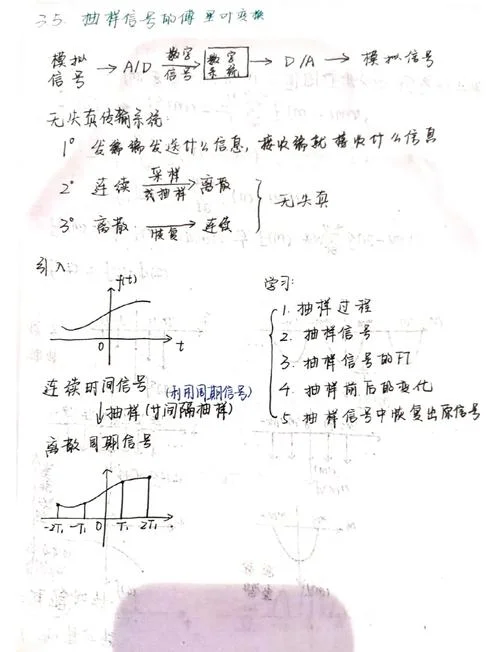 3.5. 抽样信号的傅里叶变换
模拟信号 → A/D 数字信号→ 数字系统 → D/A → 模拟信号
无失真传输系统:
1° 发输端发送什么信息, 接收端就接收什么信息
2° 连续 采样或抽样→ 离散
3° 离散 恢复→ 连续
无失真
引入:
f(t)
0
t
连续时间信号 (利用周期信号)
↓抽样 (等间隔抽样)
离散周期信号
-2T₁ -T₁ 0 T₁ 2T₁
学习:
1. 抽样过程
2. 抽样信号
3. 抽样信号的FT
4. 抽样前后的变化
5. 抽样信号中恢复出原信号